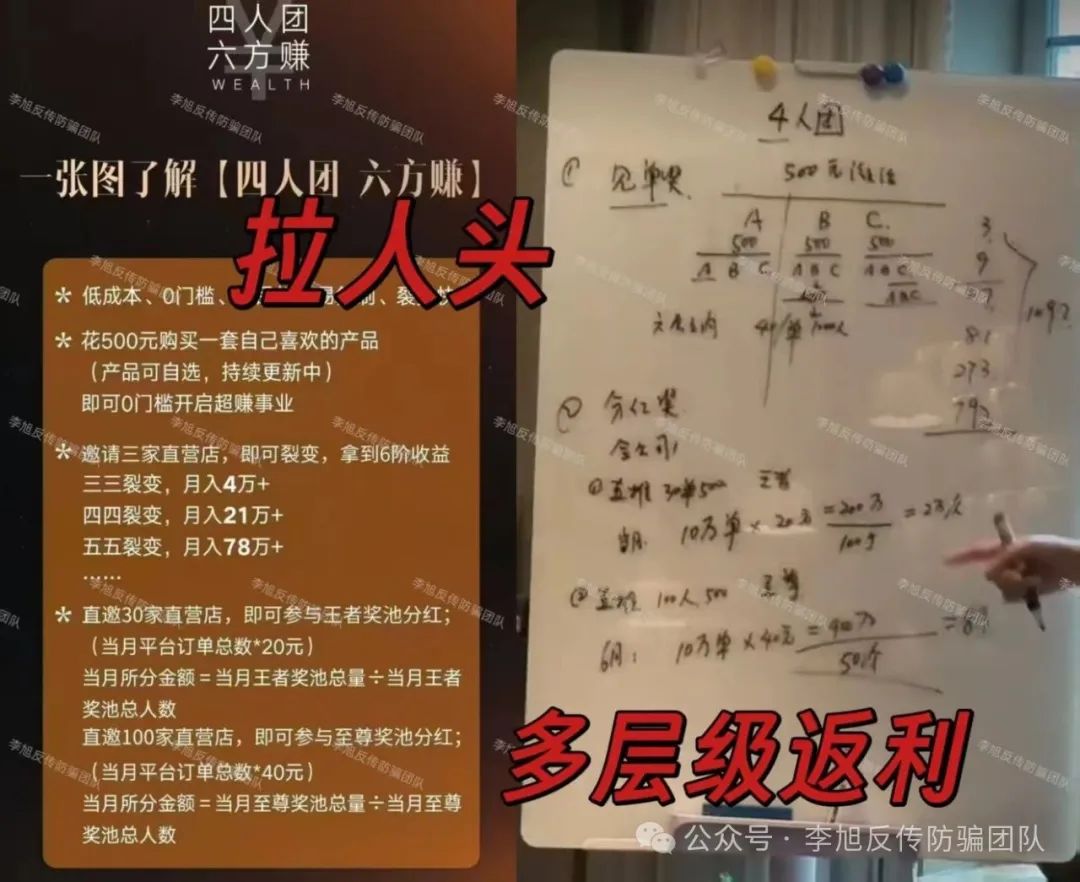 四人团
六方赚
WEALTH
一张图了解【四人团 六方赚】
拉人头
* 低成本、0门槛、
* 花500元购买一套自己喜欢的产品
（产品可自选，持续更新中）
即可0门槛开启超赚事业
* 邀请三家直营店，即可裂变，拿到6阶收益
三三裂变，月入4万+
四四裂变，月入21万+
五五裂变，月入78万+
……
* 直邀30家直营店，即可参与王者奖池分红；
（当月平台订单总数*20元）
当月所分金额＝当月王者奖池总量÷当月王者
奖池总人数
直邀100家直营店，即可参与至尊奖池分红；
（当月平台订单总数*40元）
当月所分金额＝当月至尊奖池总量÷当月至尊
奖池总人数
4人团
① 见单奖
500元
A B C
500 500 500
A B C A B C A B C
A B C
3
9
81
273
分红奖
① 直推 30单500 王者
10万单×20元=200万
② 直推 100人500
10万单×40元=400万
多层级返利
公众号·李旭反传防骗团队
李旭反传防骗团队